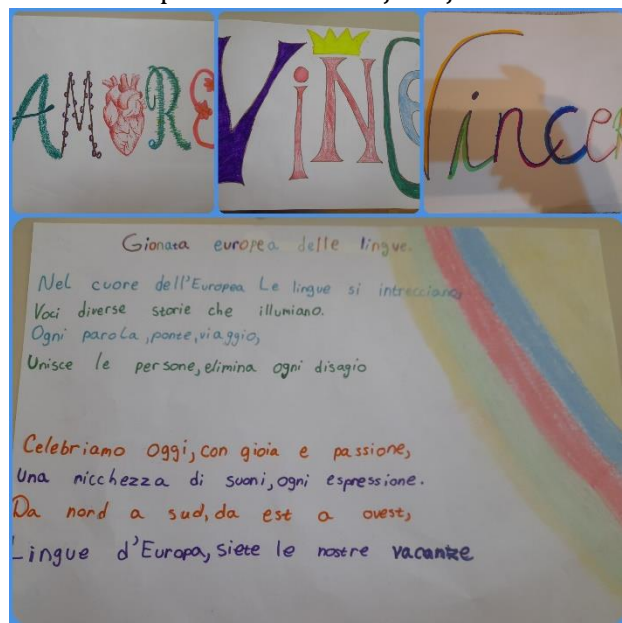 AMORE
ViNCe
Vincer
Gionata europea delle lingue.
Nel cuore dell'Europea Le lingue si intrecciano,
Voci diverse storie che illumiano.
Ogni parola, ponte, viaggio,
Unisce le persone, elimina ogni disagio
Celebriamo oggi, con gioia e passione,
Una nicchezza di suoni, ogni espressione.
Da nord a sud, da est a ovest,
Lingue d'Europa, siete le nostre vacanze